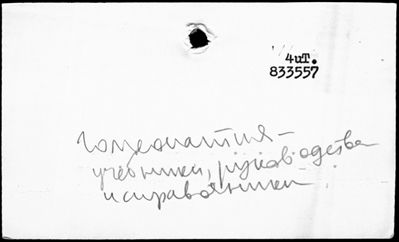 4иТ.
833557
гомеопатия –
учебники, руководства
и справочники